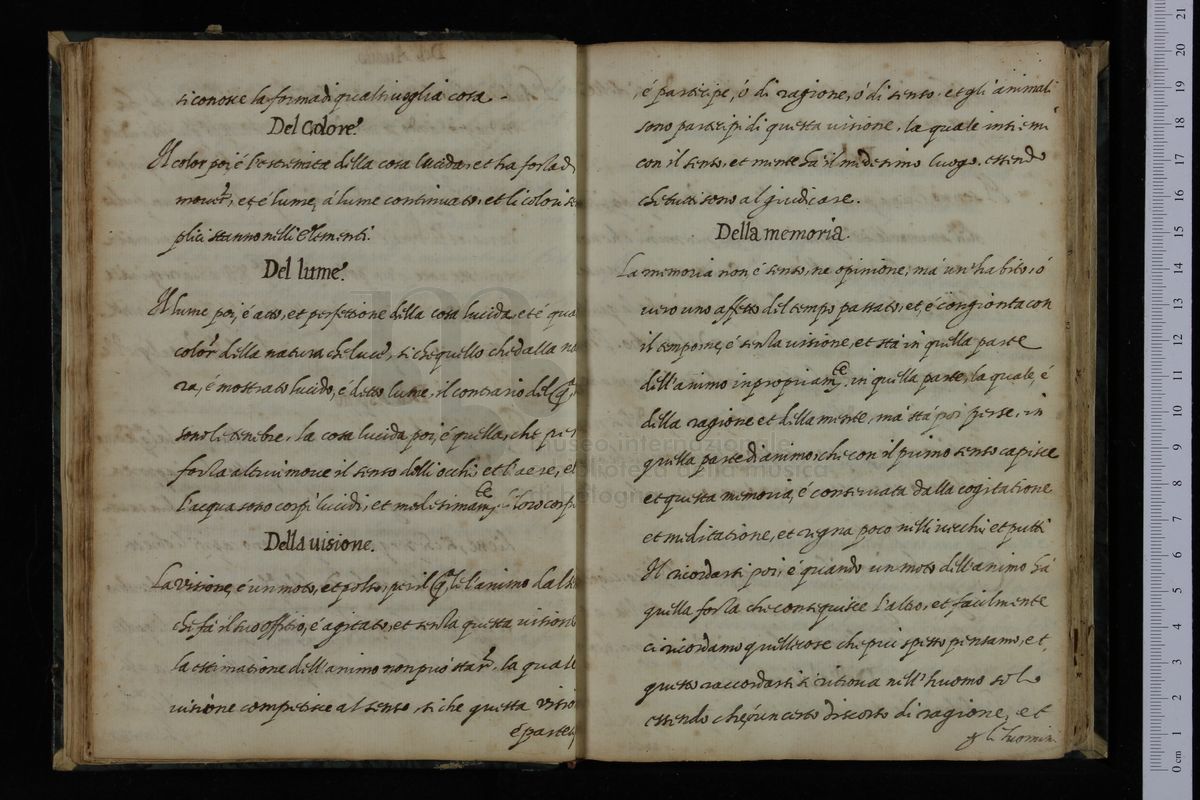 si conosce la forma di qual si voglia cosa.
Del Colore.
Il color poi, é l'estremità della cosa lucida, et ha forza di
mover, et é lume, á lume continuato, et li colori sem
plici stanno nelli Elementi.
Del lume.
Il lume poi, é atto, et perfettione della cosa lucida, et é qua
color della natura che luce, si che quello che dalla na
ra, é mostrato lucido, é detto lume, il contrario del
sono le tenebre. la cosa lucida poi, é quella, che per
forza altrui move il senso delli occhi, et l'aere, et
l'acqua sono corpi lucidi, et medesimam.te corp
Della visione.
La visione, é un moto, et per il l'animo dal se
che fá il suo offitio, é agitato, et senza questa visione
la estimatione dell'animo non puó star, la quale
visione competisce al senso, si che questa visio
é parte
é participe, ó di ragione, ó di senso. et gl'animali
sono participi di questa visione, la quale insiemi
con il senso, et mente há il medesimo luogo, essendo
che tutti sono al giudicare.
Della memoria.
La memoria non é senso, ne opinione, má un'habito, ó
vero uno affetto del tempo passato, et, é congionta con
il tempo, ne, é senza visione, et stá in quella parte
dell'animo inpropriam.te in quella parte, la quale, é
della ragione et della mente, má stá poi per se, in
quella parte di animo, che con il primo senso capisce
et questa memoria, é conservata dalla cogitatione
et meditatione, et regna poco nelli vecchi et putti
Il ricordarsi poi, é quando un moto dell'animo há
quella forza che conseguisce l'altro, et facilmente
ci ricordamo quelle cose che piú spesso pensamo, et,
questo raccordarsi si ritrova nell'huomo solo
essendo che é un certo discorso di ragione, et
gl'huomin
museo internazionale
biblioteca della musica
di bologna
0 cm 1 2 3 4 5 6 7 8 9 10 11 12 13 14 15 16 17 18 19 20 21